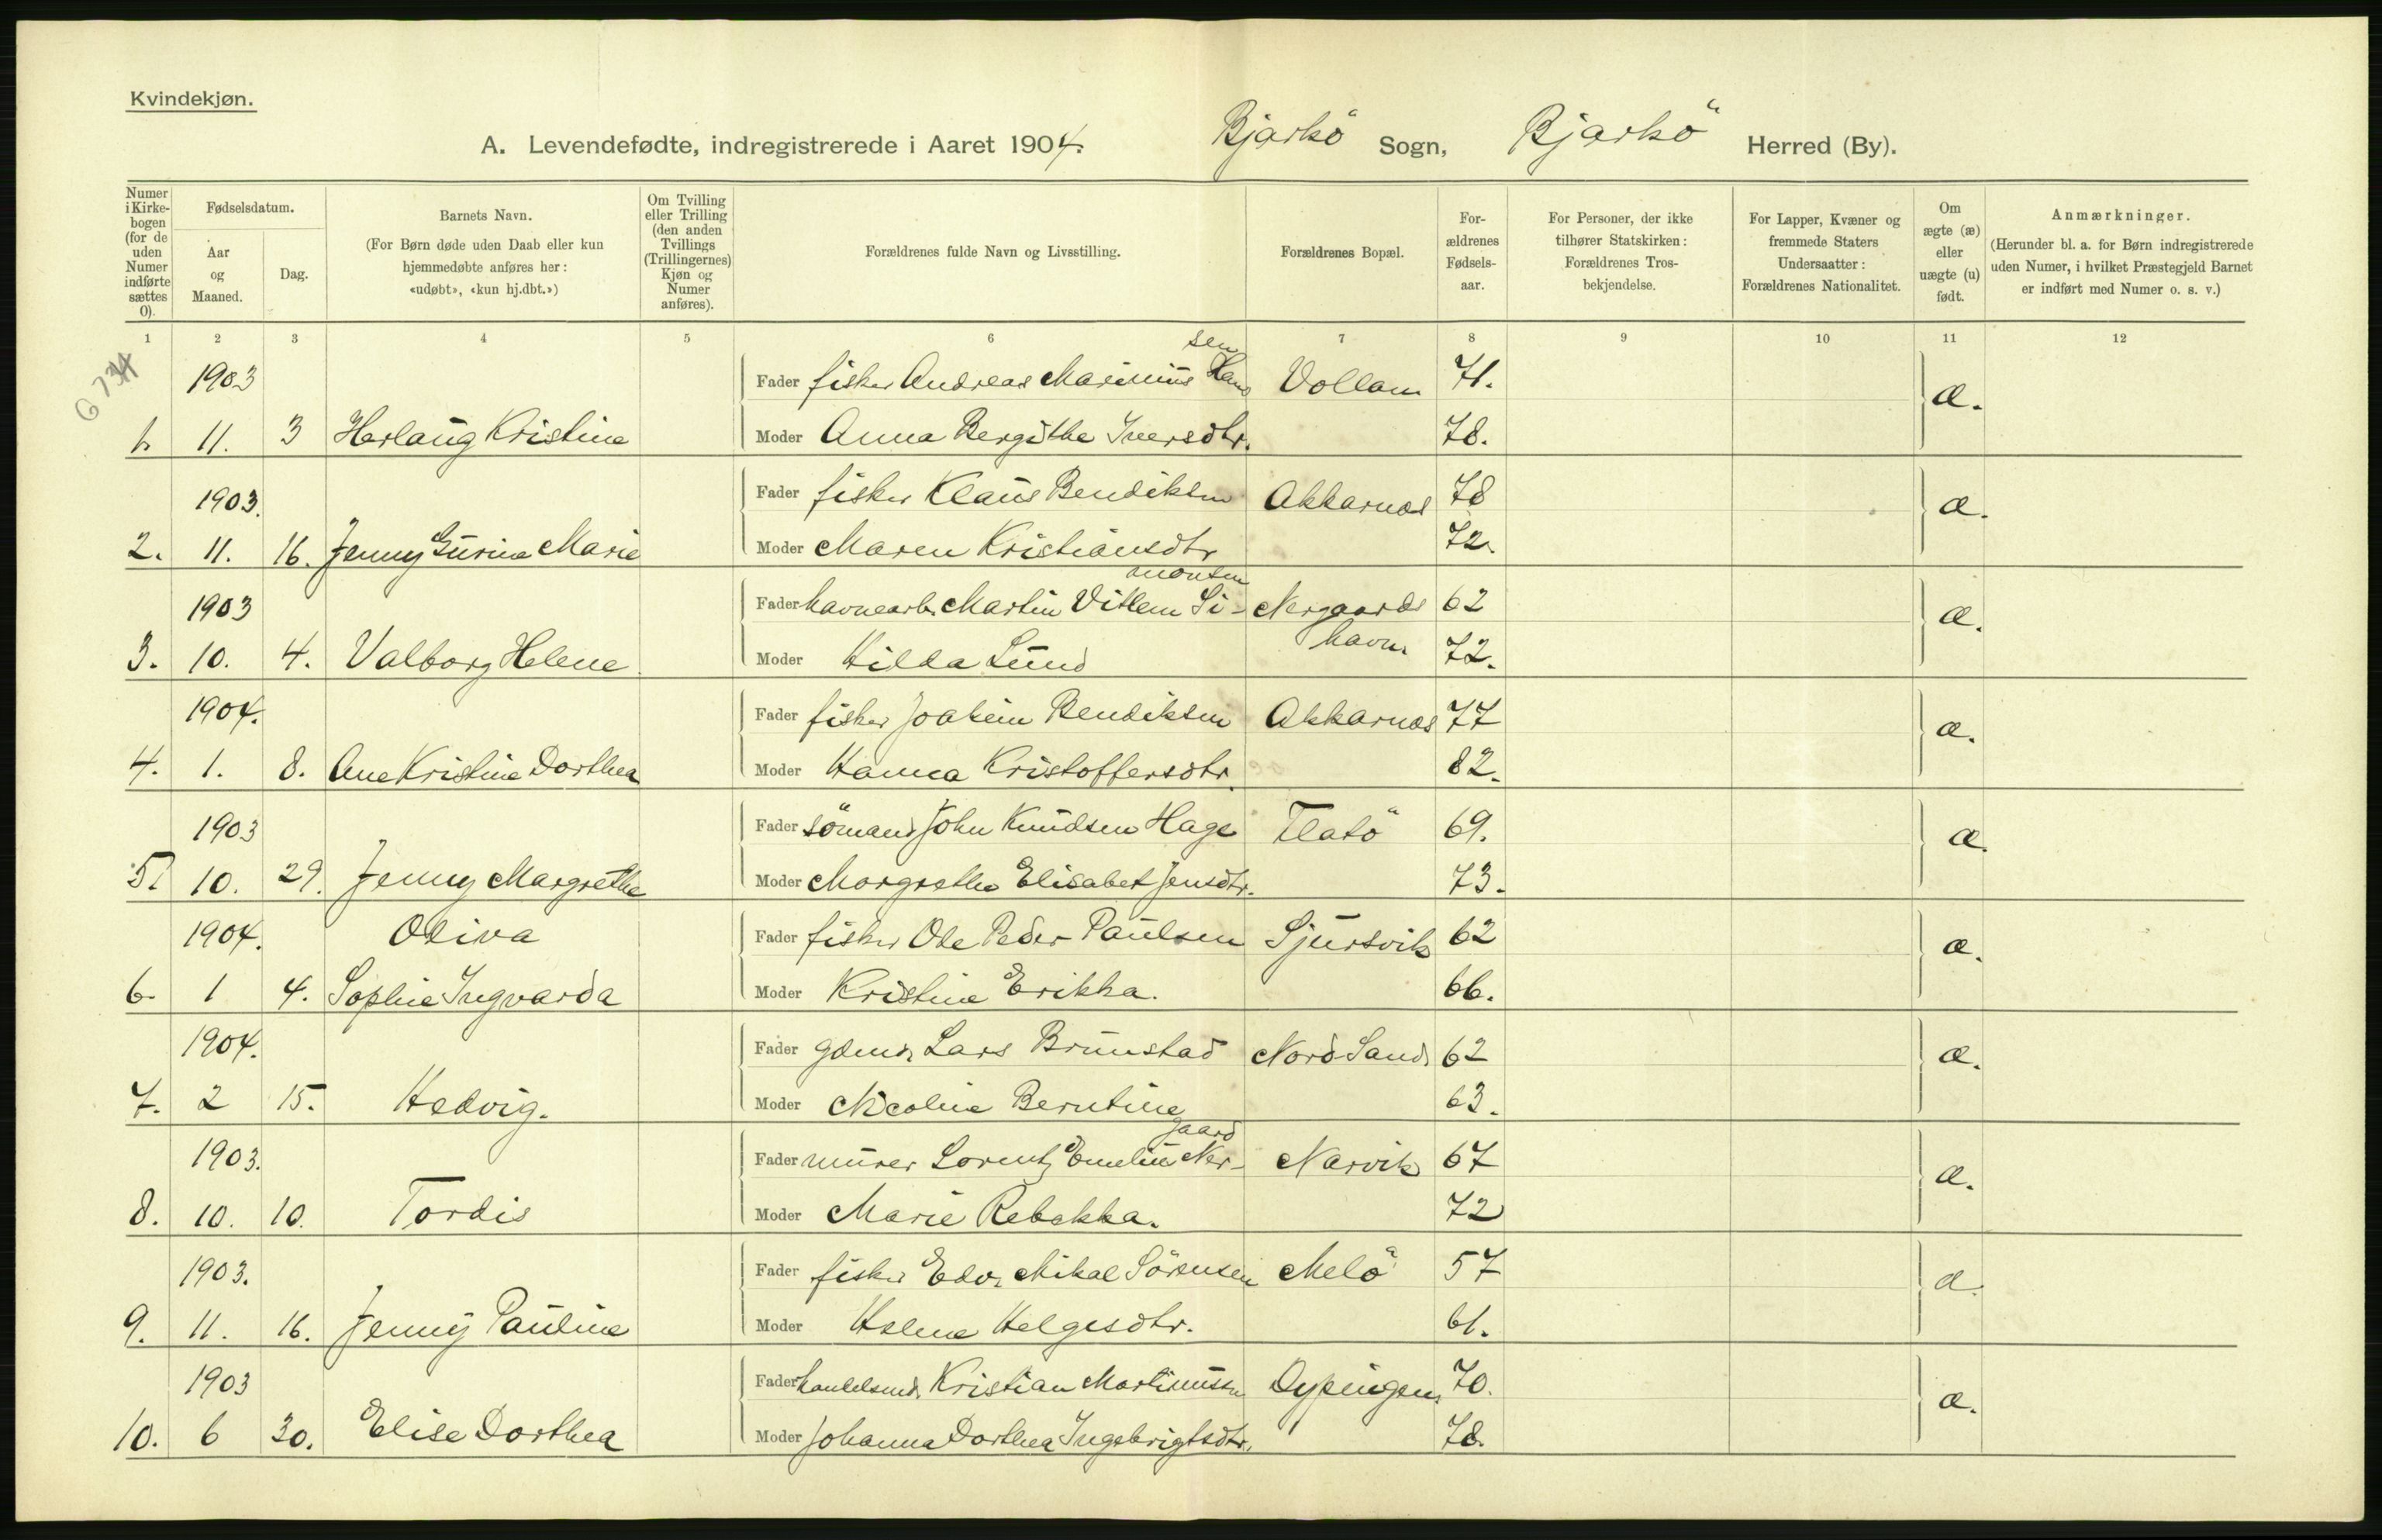 Kvindekjøn.
A. Levendefødte, indregistrerede i Aaret 1904. Bjarkö Sogn, Bjarkö Herred (By).
Numer i Kirkebogen (for de uden Numer indførte sættes 0).
Fødselsdatum.
Aar og Maaned.
Dag.
Barnets Navn.
(For Børn døde uden Daab eller kun hjemmedøbte anføres her: «udøbt», «kun hj.dbt.»)
Om Tvilling eller Trilling (den anden Tvillings (Trillingernes) Kjøn og Numer anføres).
Forældrenes fulde Navn og Livsstilling.
Forældrenes Bopæl.
Forældrenes Fødselsaar.
For Personer, der ikke tilhører Statskirken: Forældrenes Trosbekjendelse.
For Lapper, Kvæner og fremmede Staters Undersaatter: Forældrenes Nationalitet.
Om ægte (æ) eller uægte (u) født.
Anmærkninger.
(Herunder bl. a. for Børn indregistrerede uden Numer, i hvilket Præstegjeld Barnet er indført med Numer o. s. v.)
1 2 3 4 5 6 7 8 9 10 11 12
1903 Fader fisker Andreas Marinius Hansen Vollam 71. æ.
1. 11. 3 Herlaug Kristine Moder Anna Bergithe Iversdtr. 78.
1903. Fader fisker Klaus Bendiksen Akkarnæs 78 æ.
2. 11. 16. Jenny Marie Moder Maren Kristiansdtr 72.
1903 Fader havnearb. Martin Villem Simonsen Nergaards 62 æ.
havn
3. 10. 4. Valborg Helene Moder Hilda Lund 72.
1904. Fader fisker Joakim Bendiksen Akkarnæs 77 æ.
4. 1. 8. Ane Kristine Dorthea Moder Hanna Kristoffersdtr. 82.
1903 Fader sömand John Knudsen Hage Flatö 69. æ.
5. 10. 29. Jenny Margrethe Moder Margrethe Elisabet Jensdtr. 73.
1904. Oliva Fader fisker Ole Peder Paulsen Sjursvik 62 æ.
6. 1 4. Sophie Ingvarda Moder Kristine Erikka. 66.
1904. Fader gdmd. Lars Brunstad Nord-Sand. 62 æ.
7. 2 15. Hedvig. Moder Nicoline Berntine 63.
1903. Fader murer Lorentz Nergaard Narvik 67 æ.
8. 10. 10. Tordis Moder Marie Rebekka. 72
1903. Fader fisker Edv. Mikal Sörensen Melö 57 æ.
9. 11. 16. Jenny Pauline Moder Helene Helgesdtr. 61.
1903 Fader handelsmd. Kristian Martinussen Dypingen 70. æ.
10. 6 30. Elise Dorthea Moder Johanna Dorthea Ingebrigtsdtr. 78.